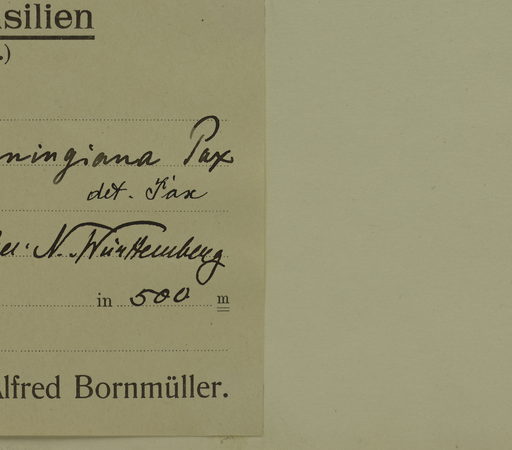 silien
.)
ningiana Pax
det. Pax
N. Württemberg
in 500 m
Alfred Bornmüller.